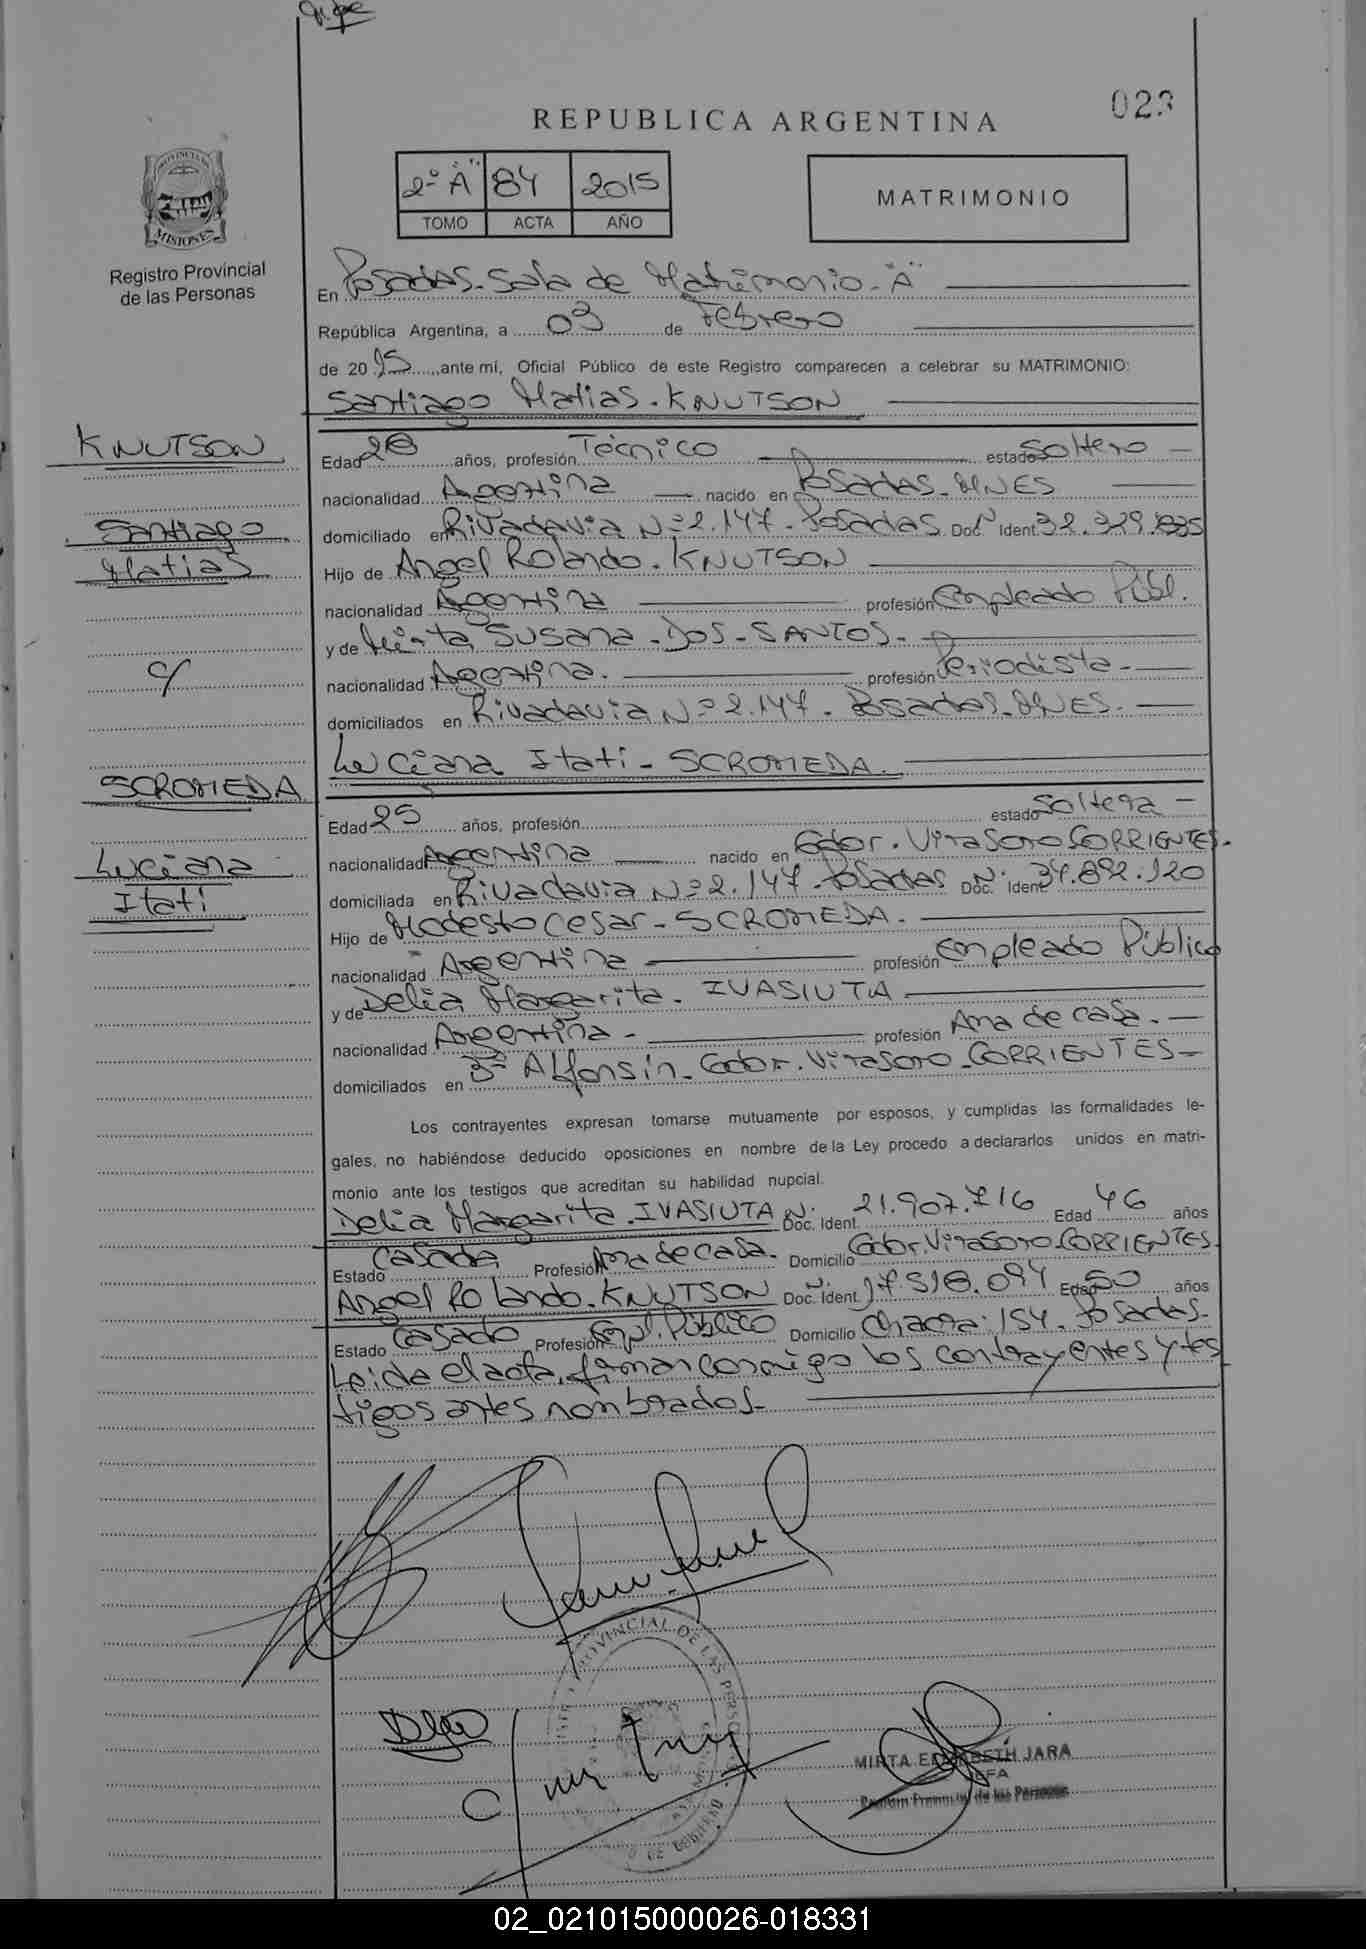 REPUBLICA ARGENTINA
023
2º "A" 84 2015
TOMO ACTA AÑO
MATRIMONIO
PROVINCIA DE
MISIONES
Registro Provincial
de las Personas
En Posadas - Sala de Matrimonio - "A"
República Argentina, a 03 de Febrero
de 2015, ante mí, Oficial Público de este Registro comparecen a celebrar su MATRIMONIO:
Santiago Matias - KNUTSON
KNUTSON
Santiago
Matias
c/
SCROMEDA
Luciana
Itati
Edad 28 años, profesión Técnico estado Soltero -
nacionalidad Argentina nacido en Posadas - MNES
domiciliado en Rivadavia Nº 2.147 - Posadas Doc. Nº Ident. 32.329.835
Hijo de Angel Rolando - KNUTSON
nacionalidad Argentina profesión Empleado Públ.
y de Mirta Susana - DOS - SANTOS -
nacionalidad Argentina. profesión Periodista -
domiciliados en Rivadavia Nº 2.147 - Posadas - MNES.
Luciana Itati - SCROMEDA.
Edad 25 años, profesión estado Soltera -
nacionalidad Argentina nacido en Gdor. Virasoro CORRIENTES.
domiciliada en Rivadavia Nº 2.147 - Posadas Doc. Nº Ident. 34.892.120
Hijo de Modesto Cesar - SCROMEDA.
nacionalidad Argentina profesión Empleado Público
y de Delia Margarita - IVASIUTA
nacionalidad Argentina - profesión Ama de casa. -
domiciliados en Bº Alfonsín - Gdor. Virasoro - CORRIENTES -
Los contrayentes expresan tomarse mutuamente por esposos, y cumplidas las formalidades le-
gales, no habiéndose deducido oposiciones en nombre de la Ley procedo a declararlos unidos en matri-
monio ante los testigos que acreditan su habilidad nupcial.
Delia Margarita - IVASIUTA Doc. Nº Ident. 21.907.716 Edad 46 años
Estado Casada Profesión Ama de casa. Domicilio Gdor. Virasoro CORRIENTES.
Angel Rolando - KNUTSON Doc. Nº Ident. 17.518.094 Edad 50 años
Estado Casado Profesión Empl. Público Domicilio Chacra: 154 - Posadas -
Leida el acta, firman conmigo los contrayentes y tes
tigos antes nombrados -
PROVINCIAL DE LAS PERSONAS
MIRTA ELIZABETH JARA
JEFA
Registro Provincial de las Personas
02_021015000026-018331